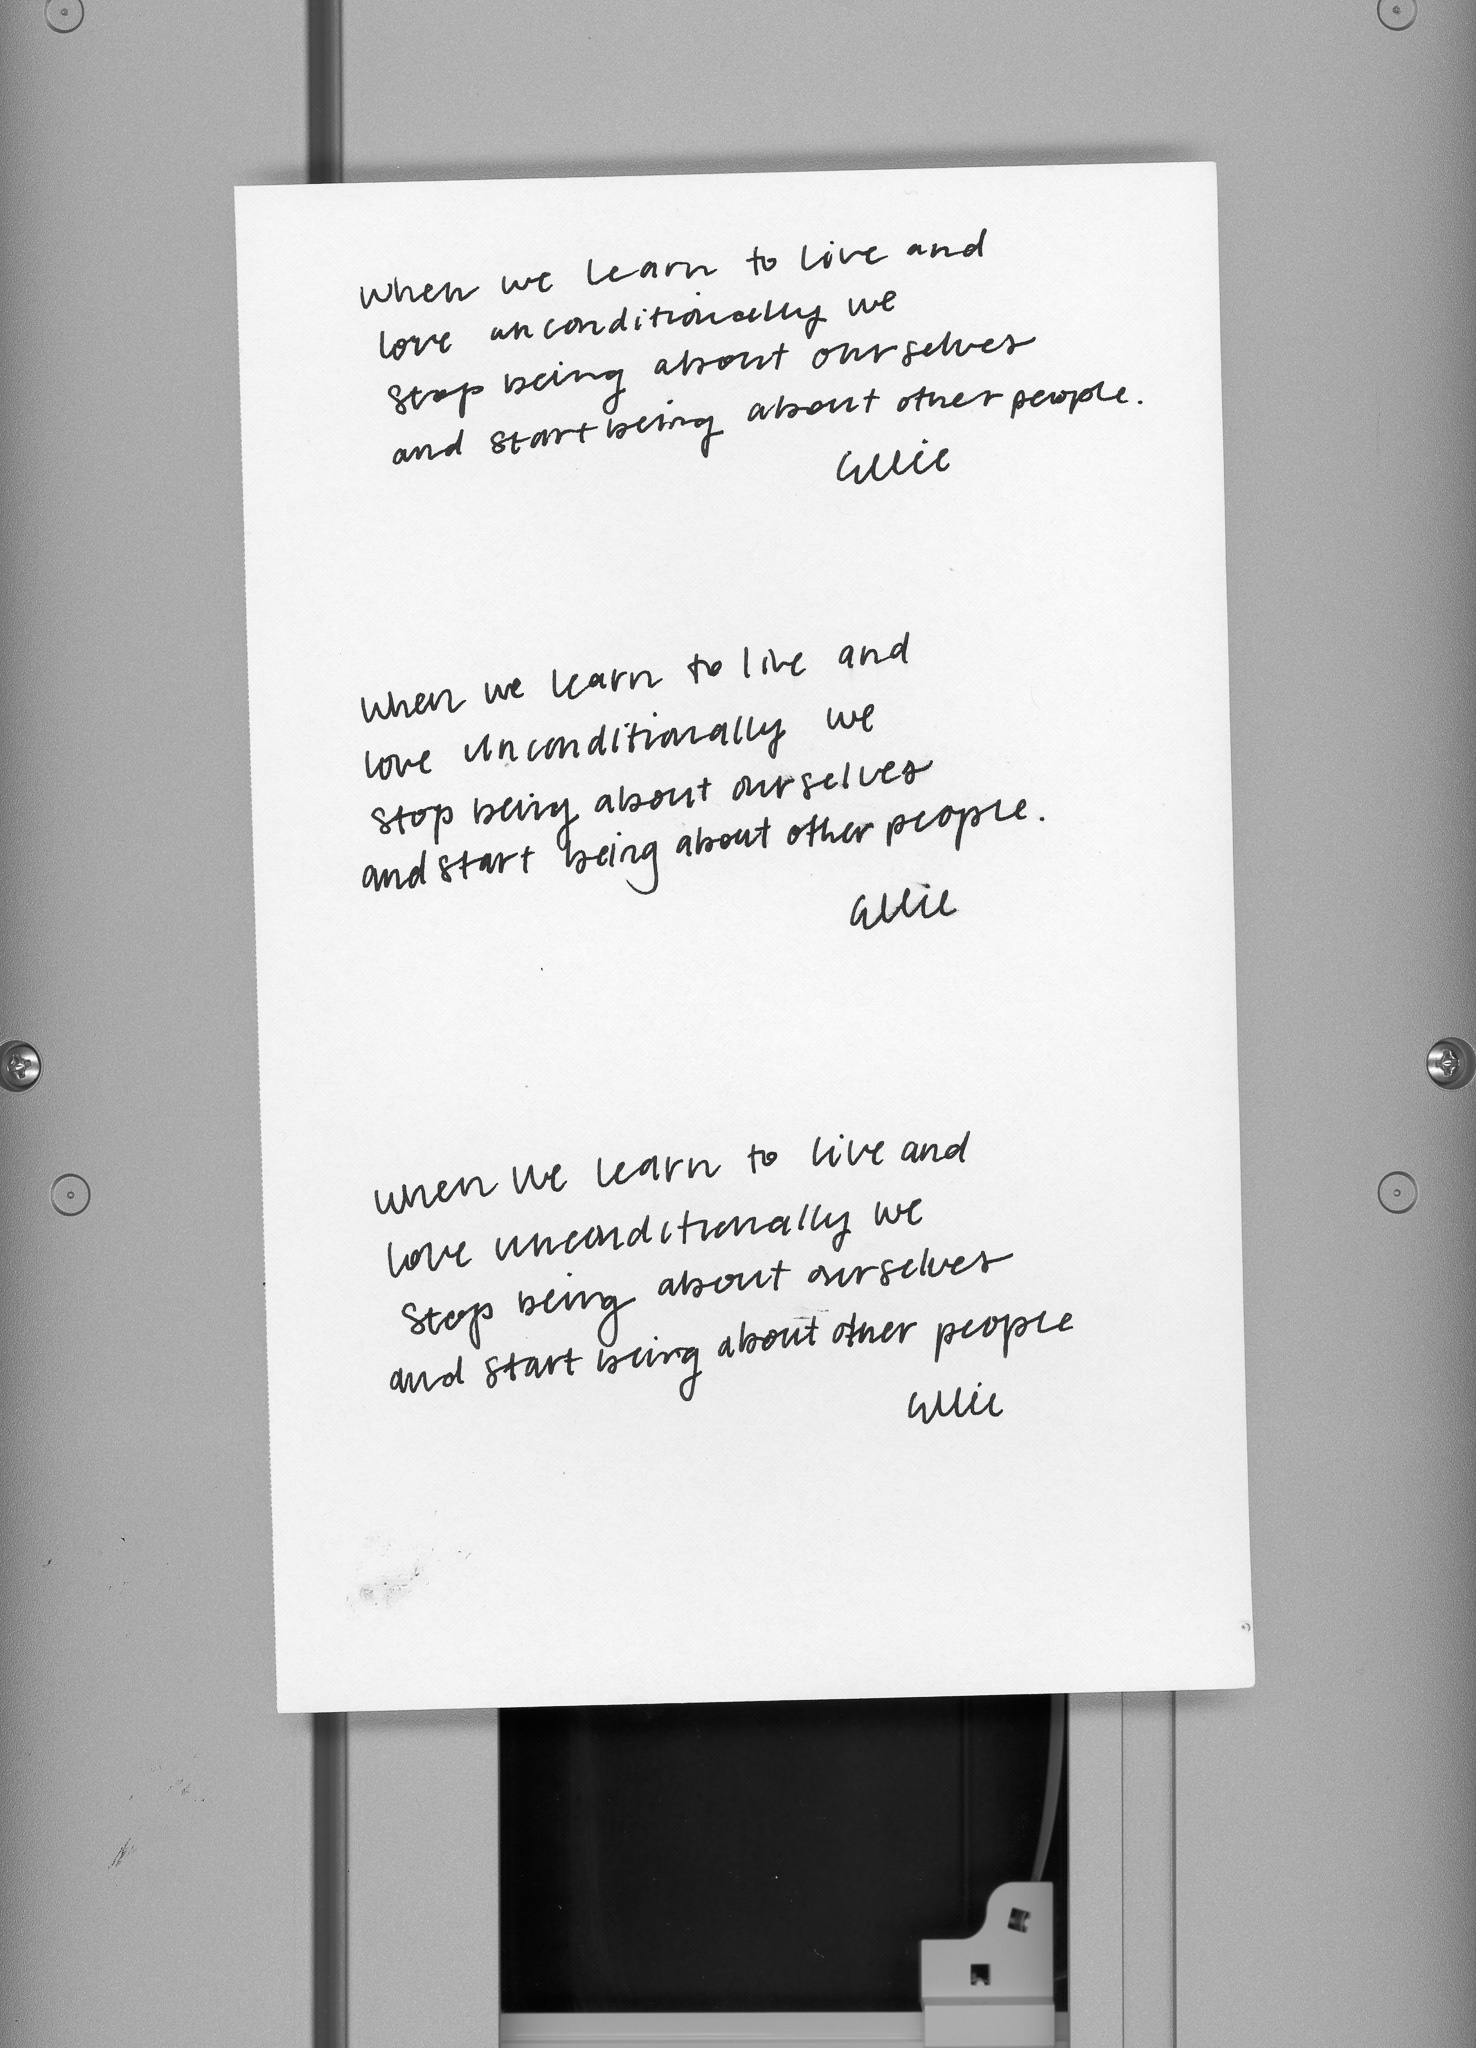 When we learn to live and
love unconditionally we
stop being about ourselves
and start being about other people.
Ellie
When we learn to live and
love unconditionally we
stop being about ourselves
and start being about other people.
Ellie
When we learn to live and
love unconditionally we
stop being about ourselves
and start being about other people
Ellie